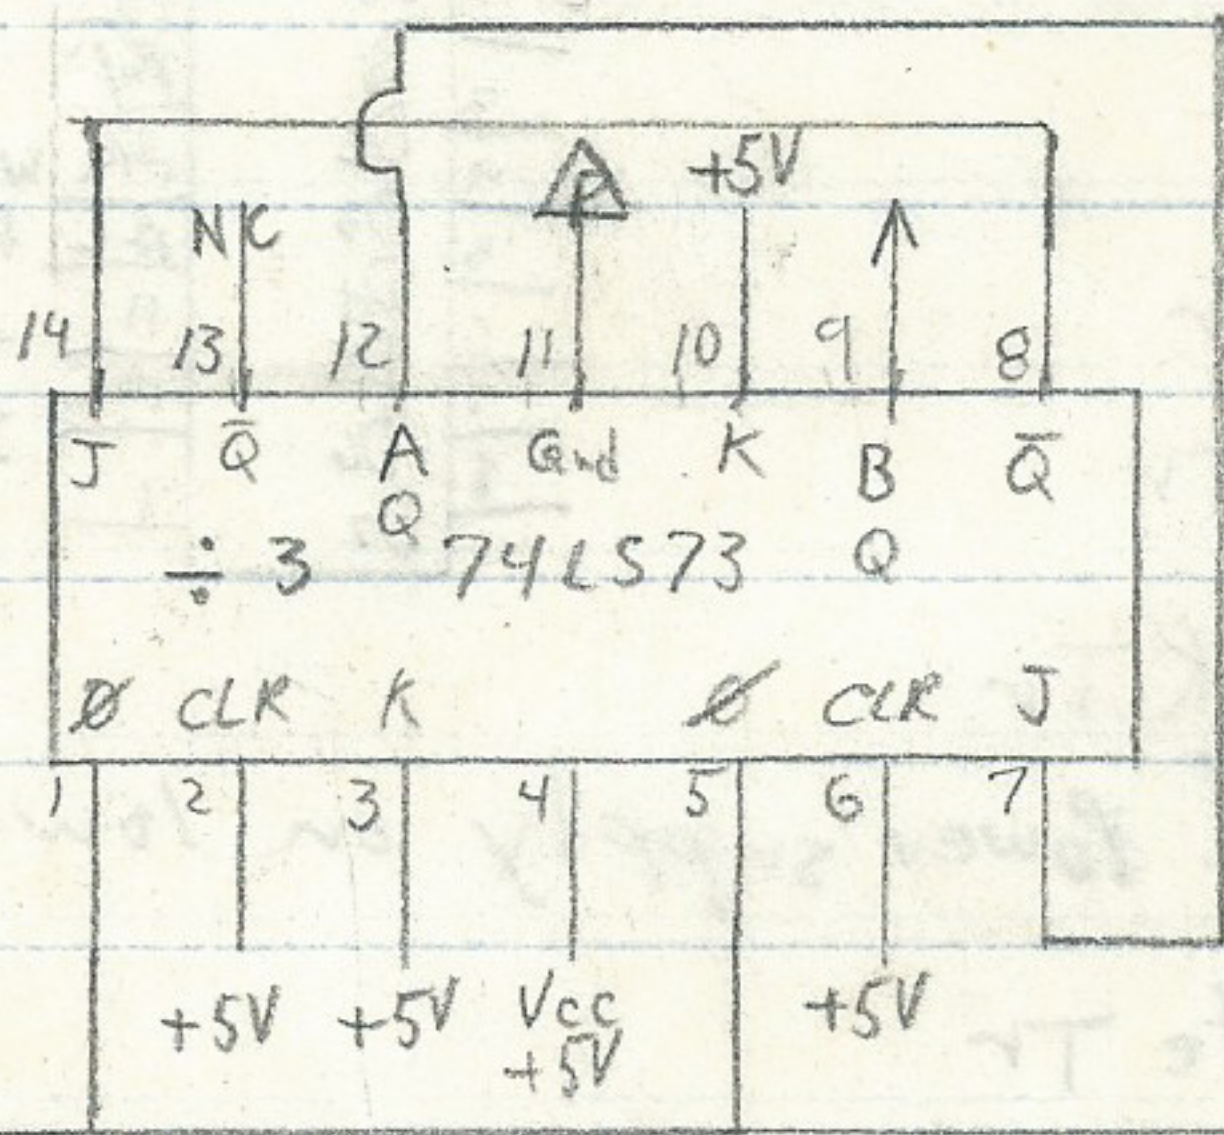 +5V
NC
14 13 12 11 10 9 8
J Q̅ A Gnd K B Q̅
Q Q
÷ 3 74LS73
Ø CLR K Ø CLR J
1 2 3 4 5 6 7
+5V +5V Vcc +5V
+5V